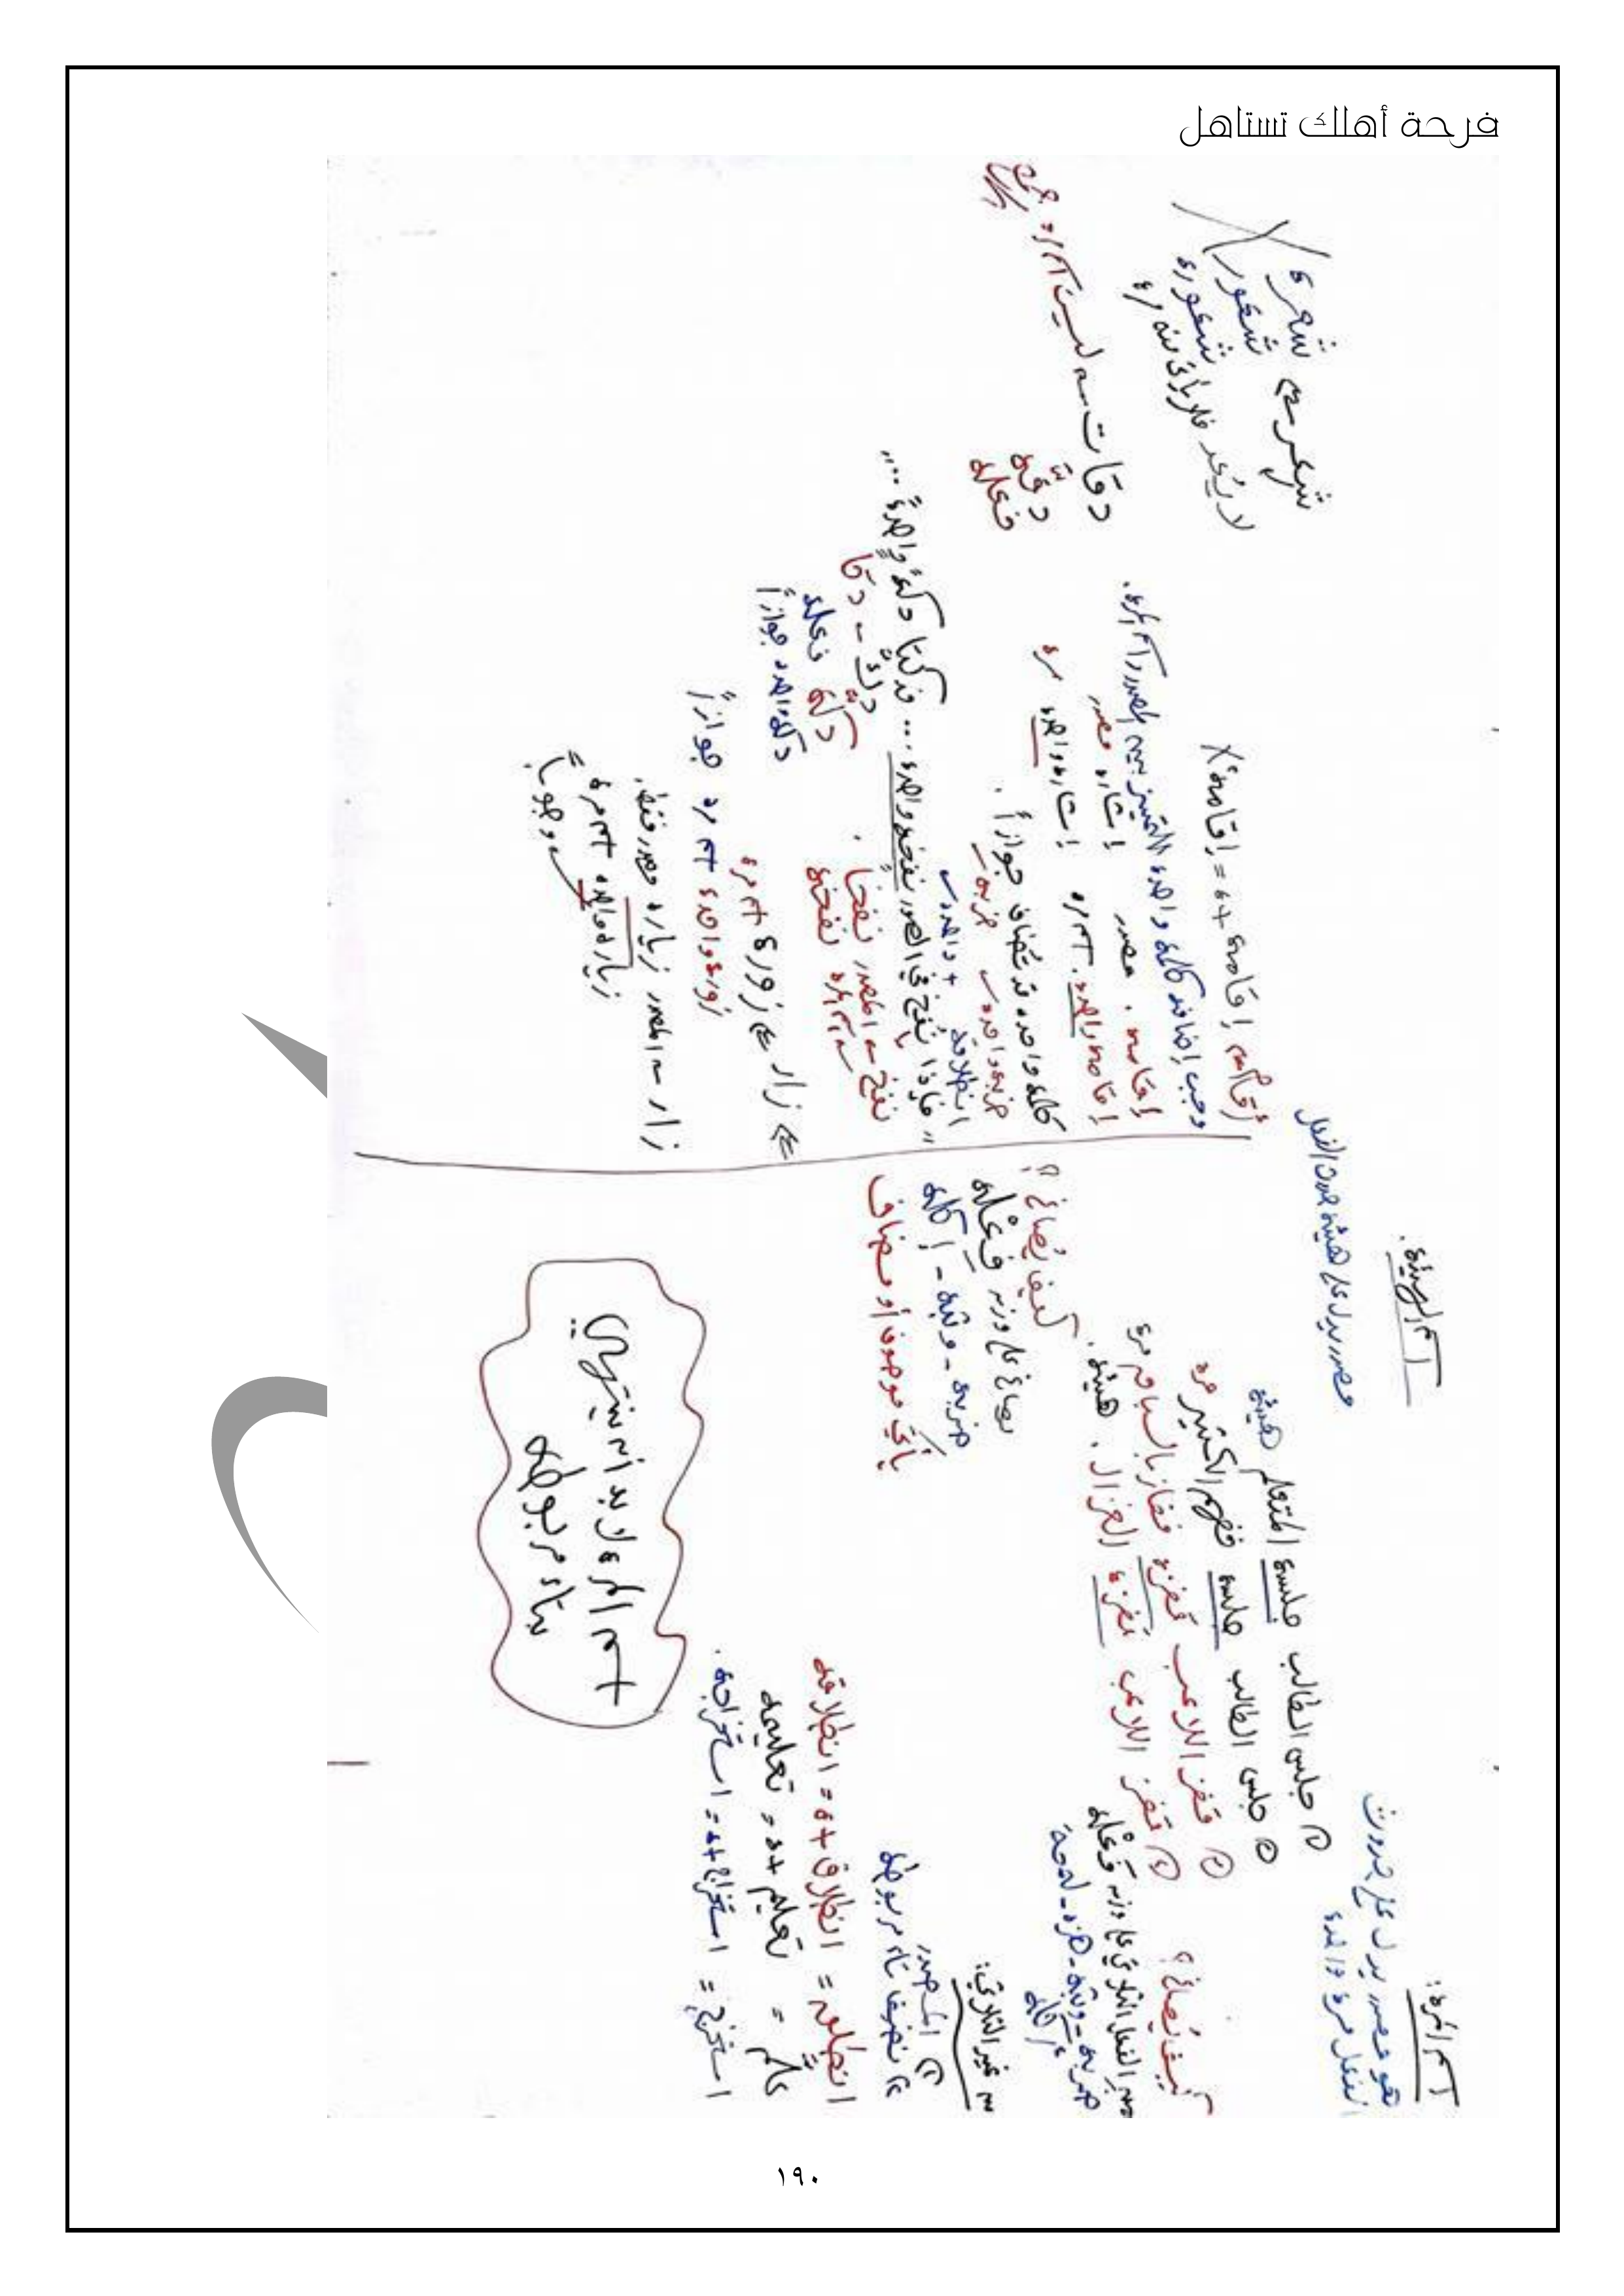 فرحة أهلك تستاهل
اسم المرة:
هو مصدر يدل على حدوث
الفعل مرة واحدة
① جلس الطالب جلسة المتعلم هيئة
② جلس الطالب جلسة مرة
③ قفز اللاعب قفزة ففاز بالسباق مرة
④ قفز اللاعب قفزة الغزال. هيئة.
كيف يُصاغ؟
من الفعل الثلاثي على وزن فَعْلة
ضربة - وثبة - هزة - لمحة
أكلة
من غير الثلاثي:
① المصدر
② نضيف تاء مربوطة
انطلق = انطلاق + ة = انطلاقة
علّم = تعليم + ة = تعليمة
استخرج = استخراج + ة = استخراجة.
اسم المرة لا بد أنه ينتهي
بتاء مربوطة
اسم الهيئة.
مصدر يدل على هيئة حدوث الفعل
كيف يُصاغ؟
يصاغ على وزن فِعْلة
ضربة - وثبة - إكلة
يأتي موصوف أو مضاف
أقام إقامة + ة = إقامة X
وجب إضافة كلمة واحدة للتمييز بين المصدر واسم المرة.
إقامة. مصدر إشارة مصدر
إقامة واحدة. اسم مرة إشارة واحدة مرة
كلمة واحدة قد تضاف جوازاً.
ضربة واحدة ضربة
انطلاقة + واحدة
"فإذا نُفخ في الصور نفخة واحدة ... فدكتا دكة واحدة ....
نفخ المصدر نفخاً. دكّ - دكا
اسم مرة نفخة دكّة فعلة
دكة واحدة جوازاً
زار زورة اسم مرة
زورة واحدة اسم مرة جوازاً
زار المصدر زيارة مصدر فقط.
زيارة واحدة اسم مرة
وجوباً
شعر شعرة
شعور
شعورة
لا يُعد فلا يأتي منه مرة
دقات ليست اسم مرة جمع
دقّة
فعلة
١٩٠